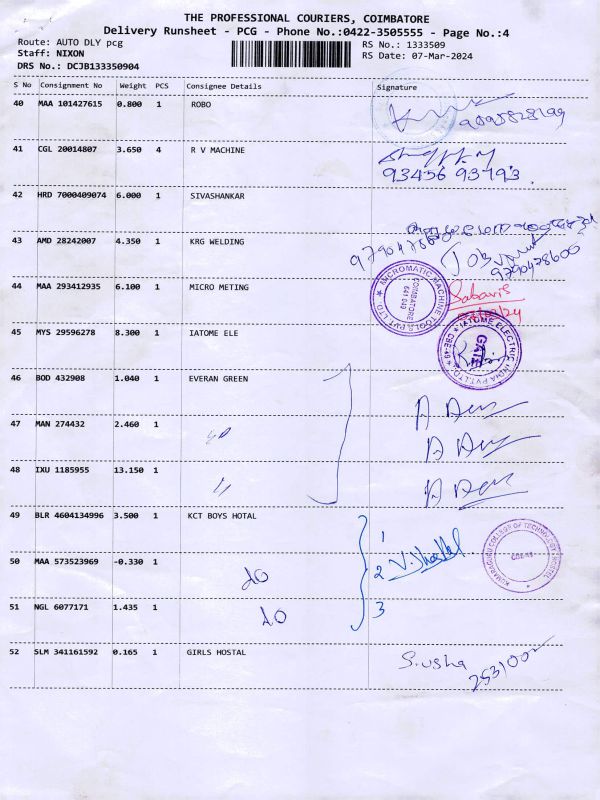 THE PROFESSIONAL COURIERS, COIMBATORE
Delivery Runsheet - PCG - Phone No.:0422-3505555 - Page No.:4
Route: AUTO DLY pcg
Staff: NIXON
DRS No.: DCJB133350904
RS No.: 1333509
RS Date: 07-Mar-2024
S No Consignment No Weight PCS Consignee Details Signature
40 MAA 101427615 0.800 1 ROBO
9095828199
41 CGL 20014807 3.650 4 R V MACHINE
93456 93793
42 HRD 7000409074 6.000 1 SIVASHANKAR
43 AMD 28242007 4.350 1 KRG WELDING
9790478600
44 MAA 293412935 6.100 1 MICRO METING
MICROMATIC MACHINE TOOLS PVT. LTD.
COIMBATORE
45 MYS 29596278 8.300 1 IATOME ELE
IATOME ELECTRIC INDIA PVT LTD
GATE
46 BOD 432908 1.040 1 EVERAN GREEN
47 MAN 274432 2.460 1
48 IXU 1185955 13.150 1
49 BLR 4604134996 3.500 1 KCT BOYS HOTAL
1
KUMARAGURU COLLEGE OF TECHNOLOGY HOSTEL
50 MAA 573523969 -0.330 1 do
2
51 NGL 6077171 1.435 1 do
3
52 SLM 341161592 0.165 1 GIRLS HOSTAL
S.usha